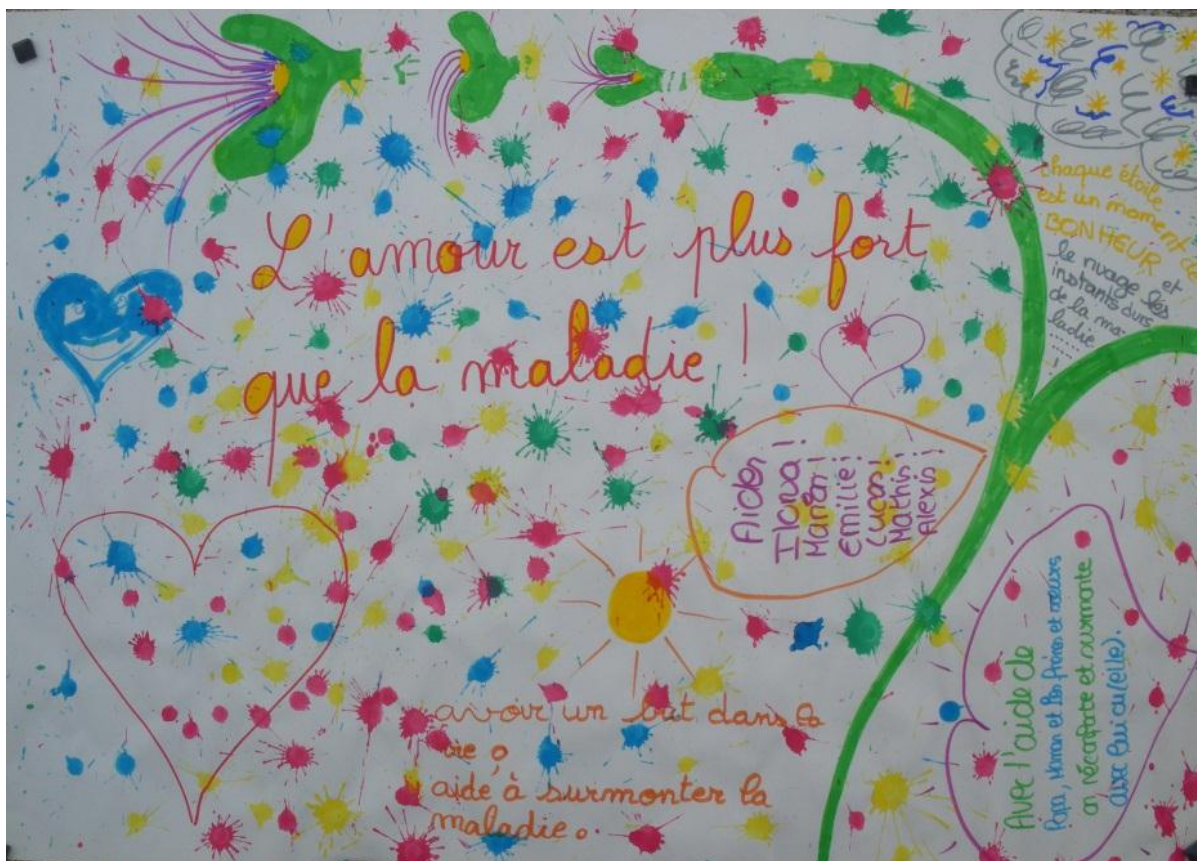 L'amour est plus fort
que la maladie !
chaque étoile
est un moment de
BONHEUR et
le nuage les
instants durs
de la ma-
ladie
.......!
Ilona !
Emilie !
Lucas !
Mathis !
Alexis !
avoir un but dans la
vie,
aide à surmonter la
maladie.
Avec l'aide de
Papa, Maman et les frères et soeurs
on réconforte et surmonte
avec lui ou (elle).